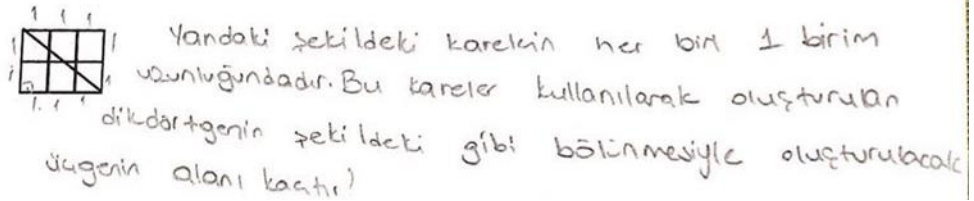 1 1 1
1 1 Yandaki şekildeki karelein her biri 1 birim
1 1 uzunluğundadır. Bu kareler kullanılarak oluşturulan
1 1 1
dikdörtgenin şekildeki gibi bölünmesiyle oluşturulacak
üçgenin alanı kaçtır?